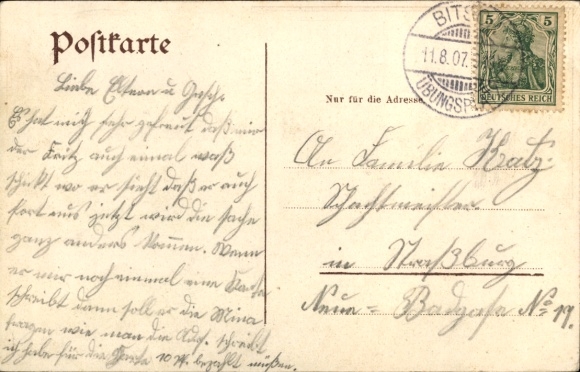 Postkarte
BITSCH
11.8.07.
ÜBUNGSPL
5 5
DEUTSCHES REICH
Nur für die Adresse
Liebe Eltern u Gesch.
Es hat mich sehr gefreut daß mir
der Fritz auch einmal waß
schickt wo er sieht daß er auch
fort muß jetzt wird die sache
ganz anders kommen. Wenn
er mir noch einmal eine Karte
schreibt dann soll er die Mina
fragen wie man die Adr. schreibt
ich habe für die Karte 10 Pf. bezahlt müßen.
An Familie Katz
Schachtmeister
in Straßburg
Neue = Badgaße No 19.